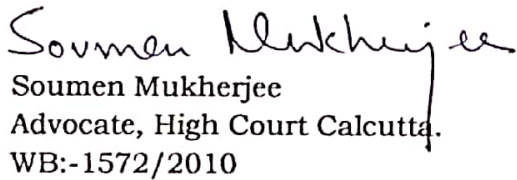 Soumen Mukherjee
Soumen Mukherjee
Advocate, High Court Calcutta.
WB:-1572/2010